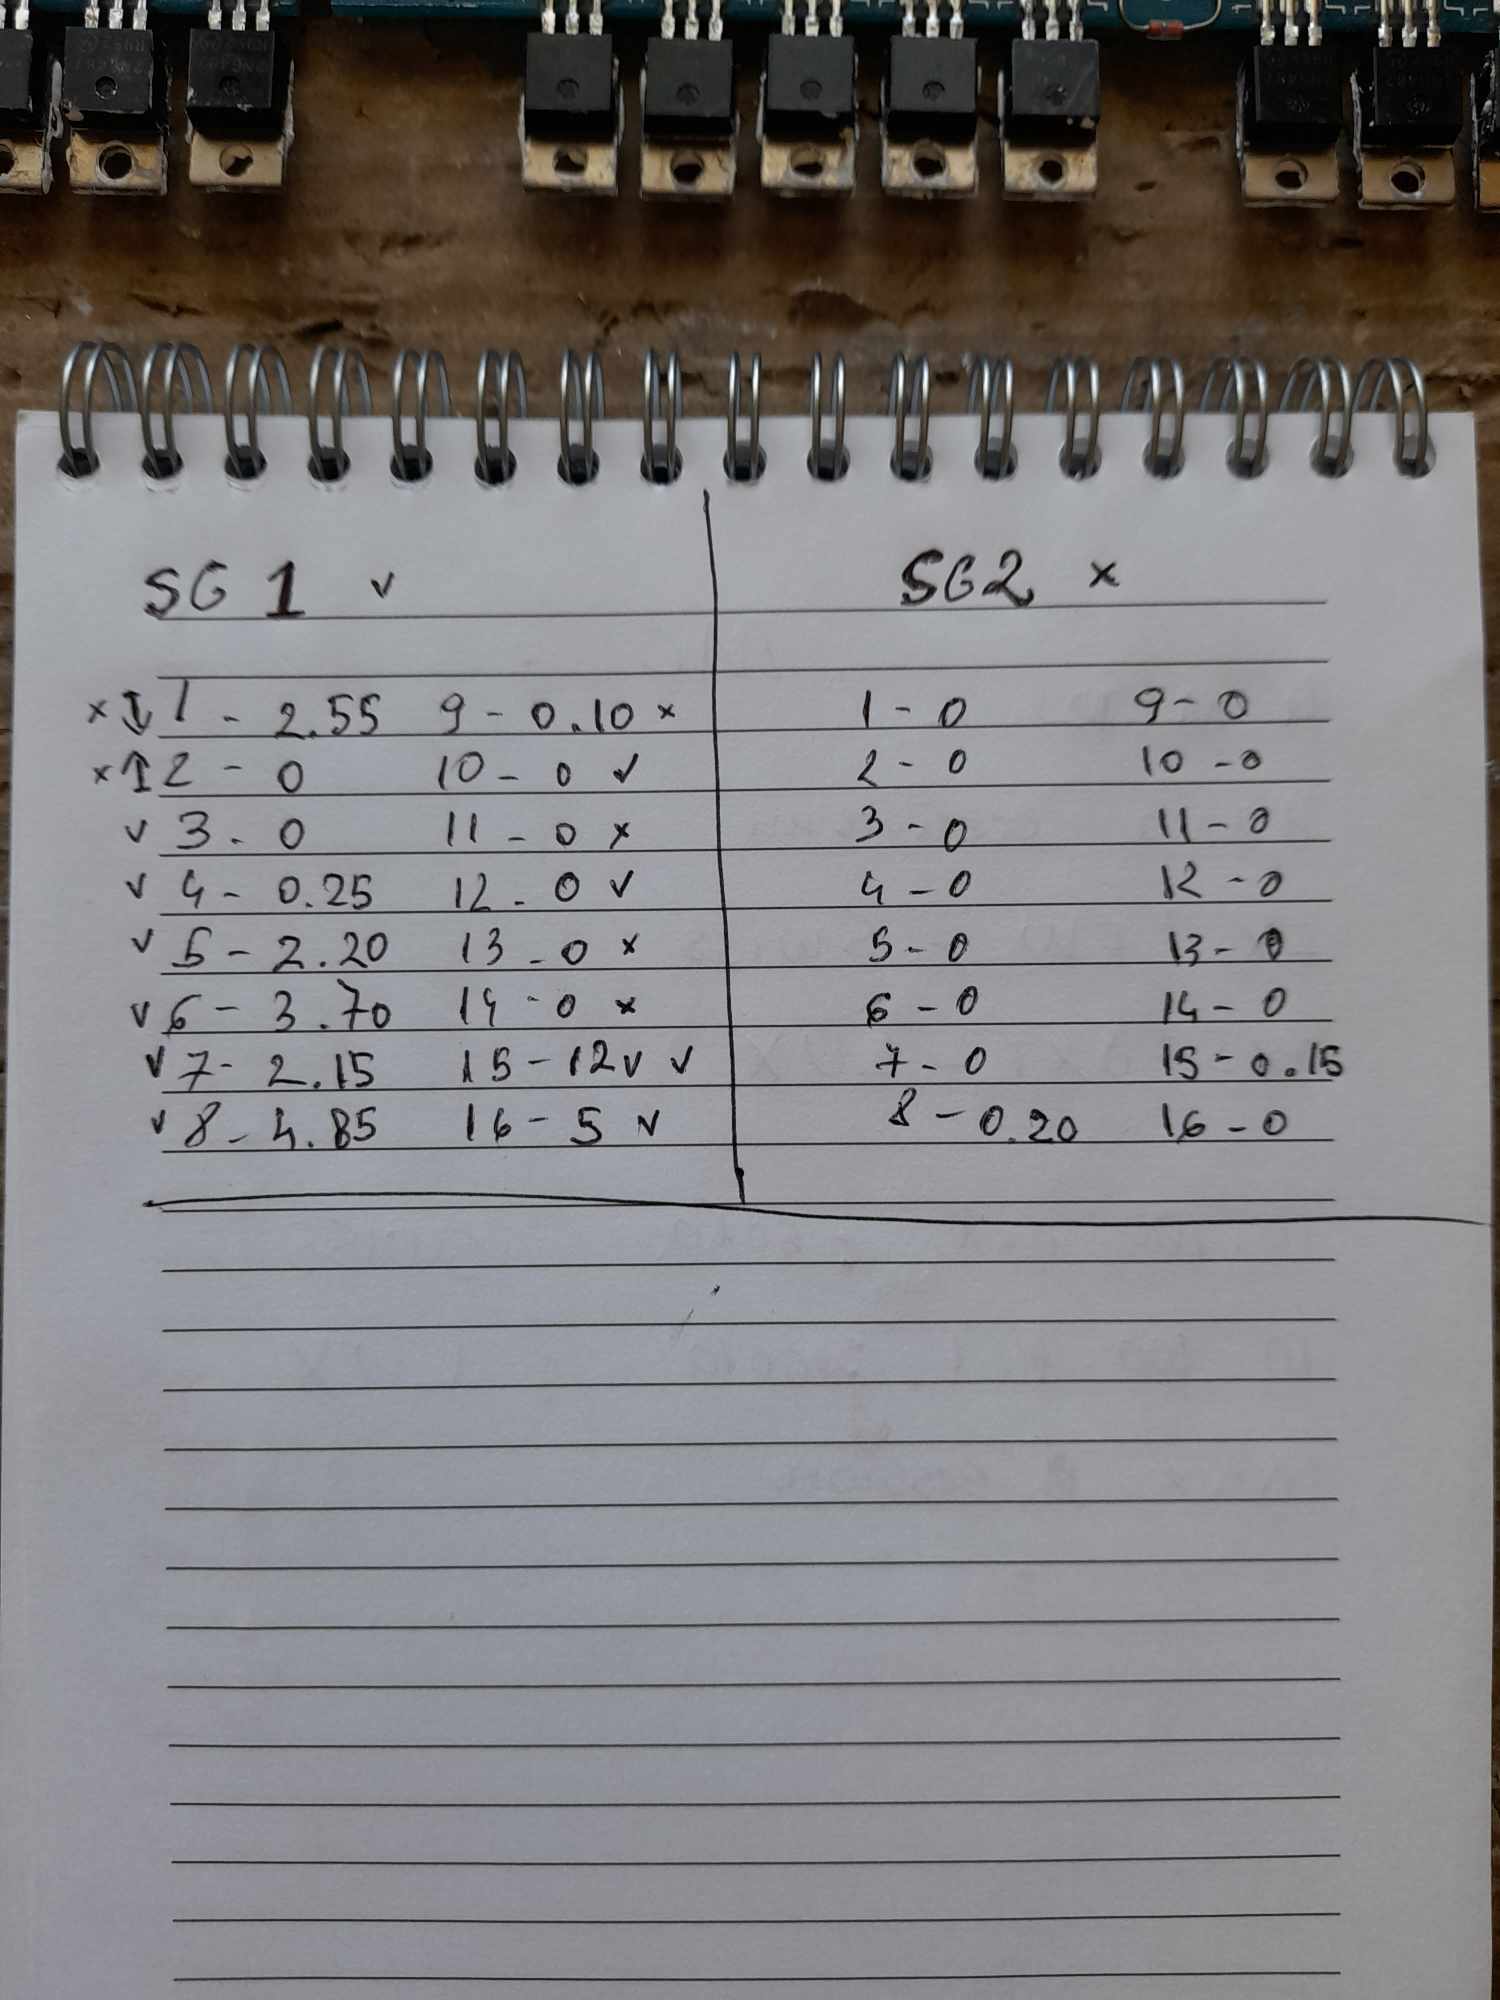 SG 1 v
× ↕ 1 - 2.55 9 - 0.10 ×
× ↑ 2 - 0 10 - 0 v
v 3 - 0 11 - 0 ×
v 4 - 0.25 12 - 0 v
v 5 - 2.20 13 - 0 ×
v 6 - 3.70 14 - 0 ×
v 7 - 2.15 15 - 12v v
v 8 - 4.85 16 - 5 v
SG2 ×
1 - 0 9 - 0
2 - 0 10 - 0
3 - 0 11 - 0
4 - 0 12 - 0
5 - 0 13 - 0
6 - 0 14 - 0
7 - 0 15 - 0.15
8 - 0.20 16 - 0